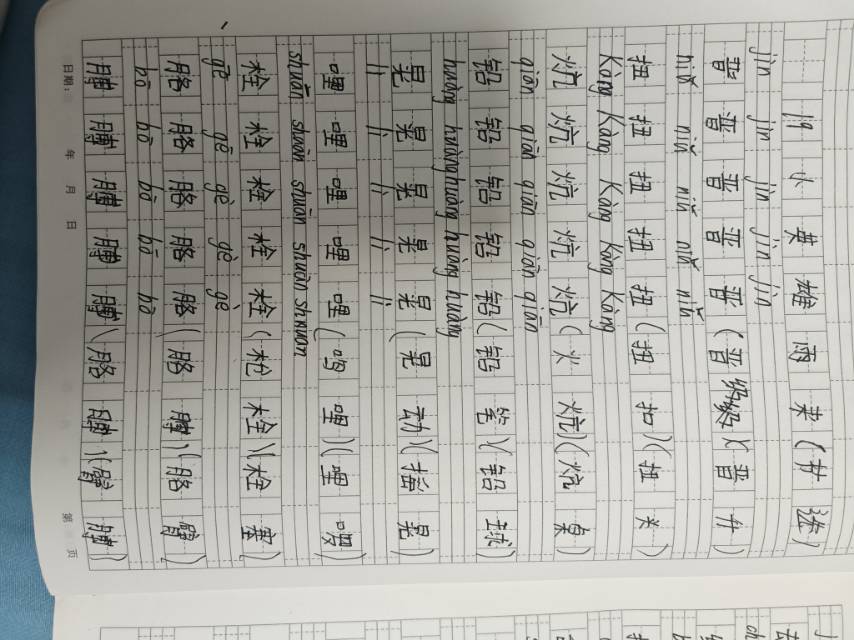 19 小英雄雨来(节选)
jìn jìn jìn jìn jìn
晋 晋 晋 晋 晋(晋级)(晋升)
niǔ niǔ niǔ niǔ niǔ
扭 扭 扭 扭 扭(扭扣)(扭头)
Kàng Kàng Kàng Kàng Kàng
炕 炕 炕 炕 炕(火炕)(炕桌)
qiān qiān qiān qiān qiān
铅 铅 铅 铅 铅(铅笔)(铅球)
huàng huàng huàng huàng huàng
晃 晃 晃 晃 晃(晃动)(摇晃)
li li li li li
哩 哩 哩 哩 哩(哩)(哩)
shuān shuān shuān shuān shuān
栓 栓 栓 栓 栓(枪栓)(栓塞)
gē gē gē gē gē
胳 胳 胳 胳 胳(胳膊)(胳臂)
bō bō bō bō bō
膊 膊 膊 膊 膊(胳膊)(臂膊)
日期: 年 月 日 第 页